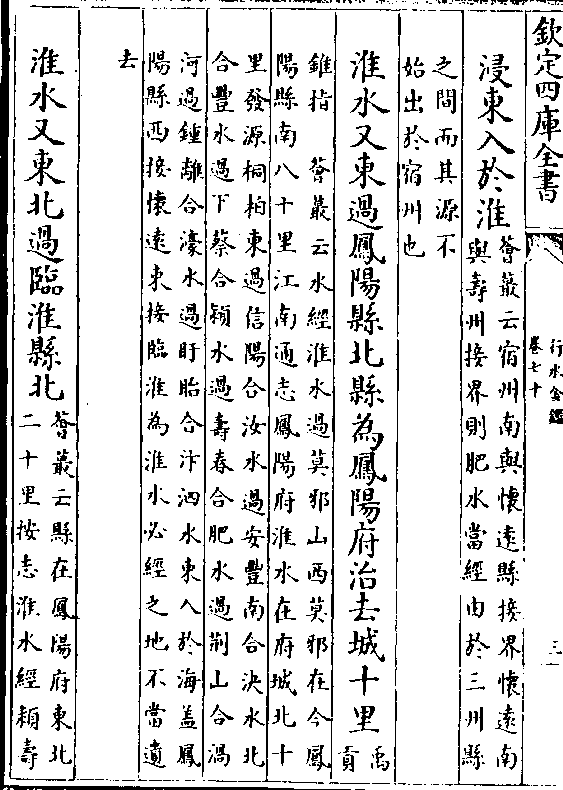 欽定四庫全書
行水金鑑
卷七十
三
浸東入於淮
薈蕞云宿州南與懷遠縣接界懷遠南
與壽州接界則肥水當經由於三州縣
之間而其源不
始出於宿州也
淮水又東過鳳陽縣北縣為鳳陽府治去城十里
禹
貢
錐指 薈蕞云水經淮水過莫邪山西莫邪在今鳳
陽縣南八十里江南通志鳳陽府淮水在府城北十
里發源桐柏東過信陽合汝水過安豐南合決水北
合豐水過下蔡合潁水過壽春合肥水過荆山合渦
河過鍾離合濠水過盱眙合汴泗水東入於海蓋鳳
陽縣西接懷遠東接臨淮為淮水必經之地不當遺
去
淮水又東北過臨淮縣北
薈蕞云縣在鳳陽府東北
二十里按志淮水經潁壽